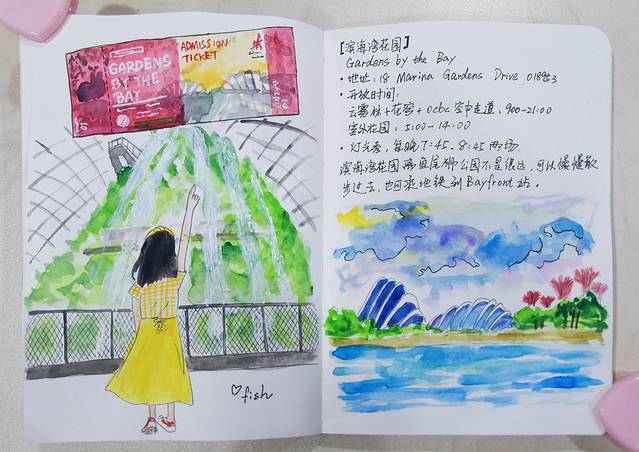 GARDENS
BY THE
BAY
ADMISSION
TICKET
♡fish
[滨海湾花园]
Gardens by the Bay
·地址:18 Marina Gardens Drive 018953
·开放时间:
云雾林+花穹+ocbc空中走道:900-21:00
室外花园:5:00-14:00
·灯光秀:每晚7:45、8:45两场.
滨海湾花园离鱼尾狮公园不是很远,可以慢慢散
步过去,也可乘地铁到Bayfront站。